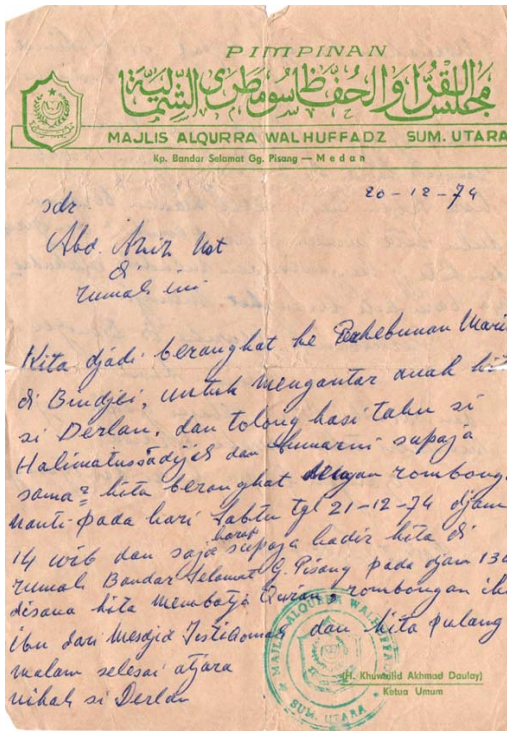 PIMPINAN
مجلس القراء والحفاظ سومطرى الشمالية
MAJLIS ALQURRA WAL HUFFADZ SUM. UTARA
Kp. Bandar Selamat Gg. Pisang — Medan
20-12-74
sdr
Abd. Aziz Nst
di
rumah ini
Kita djadi berangkat ke Perkebunan
di Bindjei, untuk mengantar anak
si Derlan, dan tolong kasi tahu si
Halimatussadijah dan supaja
sama2 kita berangkat dengan
nanti pada hari Sabtu tgl 21-12-74 djam
14 wib dan saja harap supaja hadir kita di
rumah Bandar Selamat G. Pisang pada djam
disana kita membatja Quran, rombongan
ibu dari Mesdjid Istiqomah dan kita pulang
malam selesai atjara
nikah si Derlan
MAJLIS ALQURRA WAL HUFFADZ
SUM. UTARA
(H. Khuwailid Akhmad Daulay)
Ketua Umum